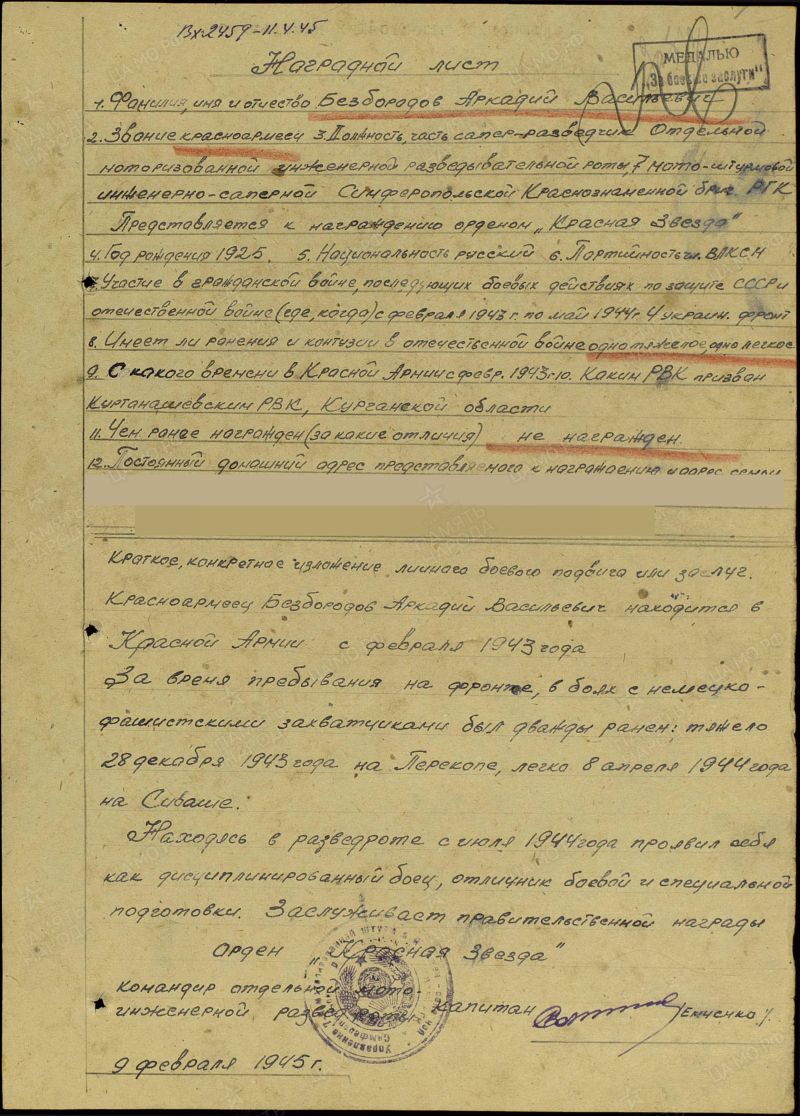 Вх2459-11.4.45
Наградной лист
МЕДАЛЬЮ
"За боевые заслуги"
1. Фамилия, имя и отчество Безбородов Аркадий Васильевич
2. Звание красноармеец 3. Должность, часть сапер-разведчик Отдельной
моторизованной инженерной разведывательной роты, 7 мото-штурмовой
инженерно-саперной Симферопольской Краснознаменной бриг. РГК
Представляется к награждению орденом „Красная Звезда"
4. Год рождения 1925. 5. Национальность русский 6. Партийность чл. ВЛКСМ
7. Участие в гражданской войне, последующих боевых действиях по защите СССР и
отечественной войне (где, когда) с февраля 1943 г. по май 1944г 4 украин. фронт
8. Имеет ли ранения и контузии в отечественной войне одно тяжелое, одно легкое
9. С какого времени в Красной Армии с февр. 1943г 10. Каким РВК призван
РВК, Курганской области
11. Чем ранее награжден (за какие отличия) не награжден.
12. Постоянный домашний адрес представляемого к награждению и адрес семьи
Краткое, конкретное изложение личного боевого подвига или заслуг.
Красноармеец Безбородов Аркадий Васильевич находится в
Красной Армии с февраля 1943 года
За время пребывания на фронте, в боях с немецко-
фашистскими захватчиками был дважды ранен: тяжело
28 декабря 1943 года на Перекопе, легко 8 апреля 1944 года
на Сиваше.
Находясь в разведроте с июля 1944 года проявил себя
как дисциплинированный боец, отличник боевой и специальной
подготовки. Заслуживает правительственной награды
Орден „Красная Звезда"
Командир отдельной мото-
инженерной разведроты капитан
9 февраля 1945 г.